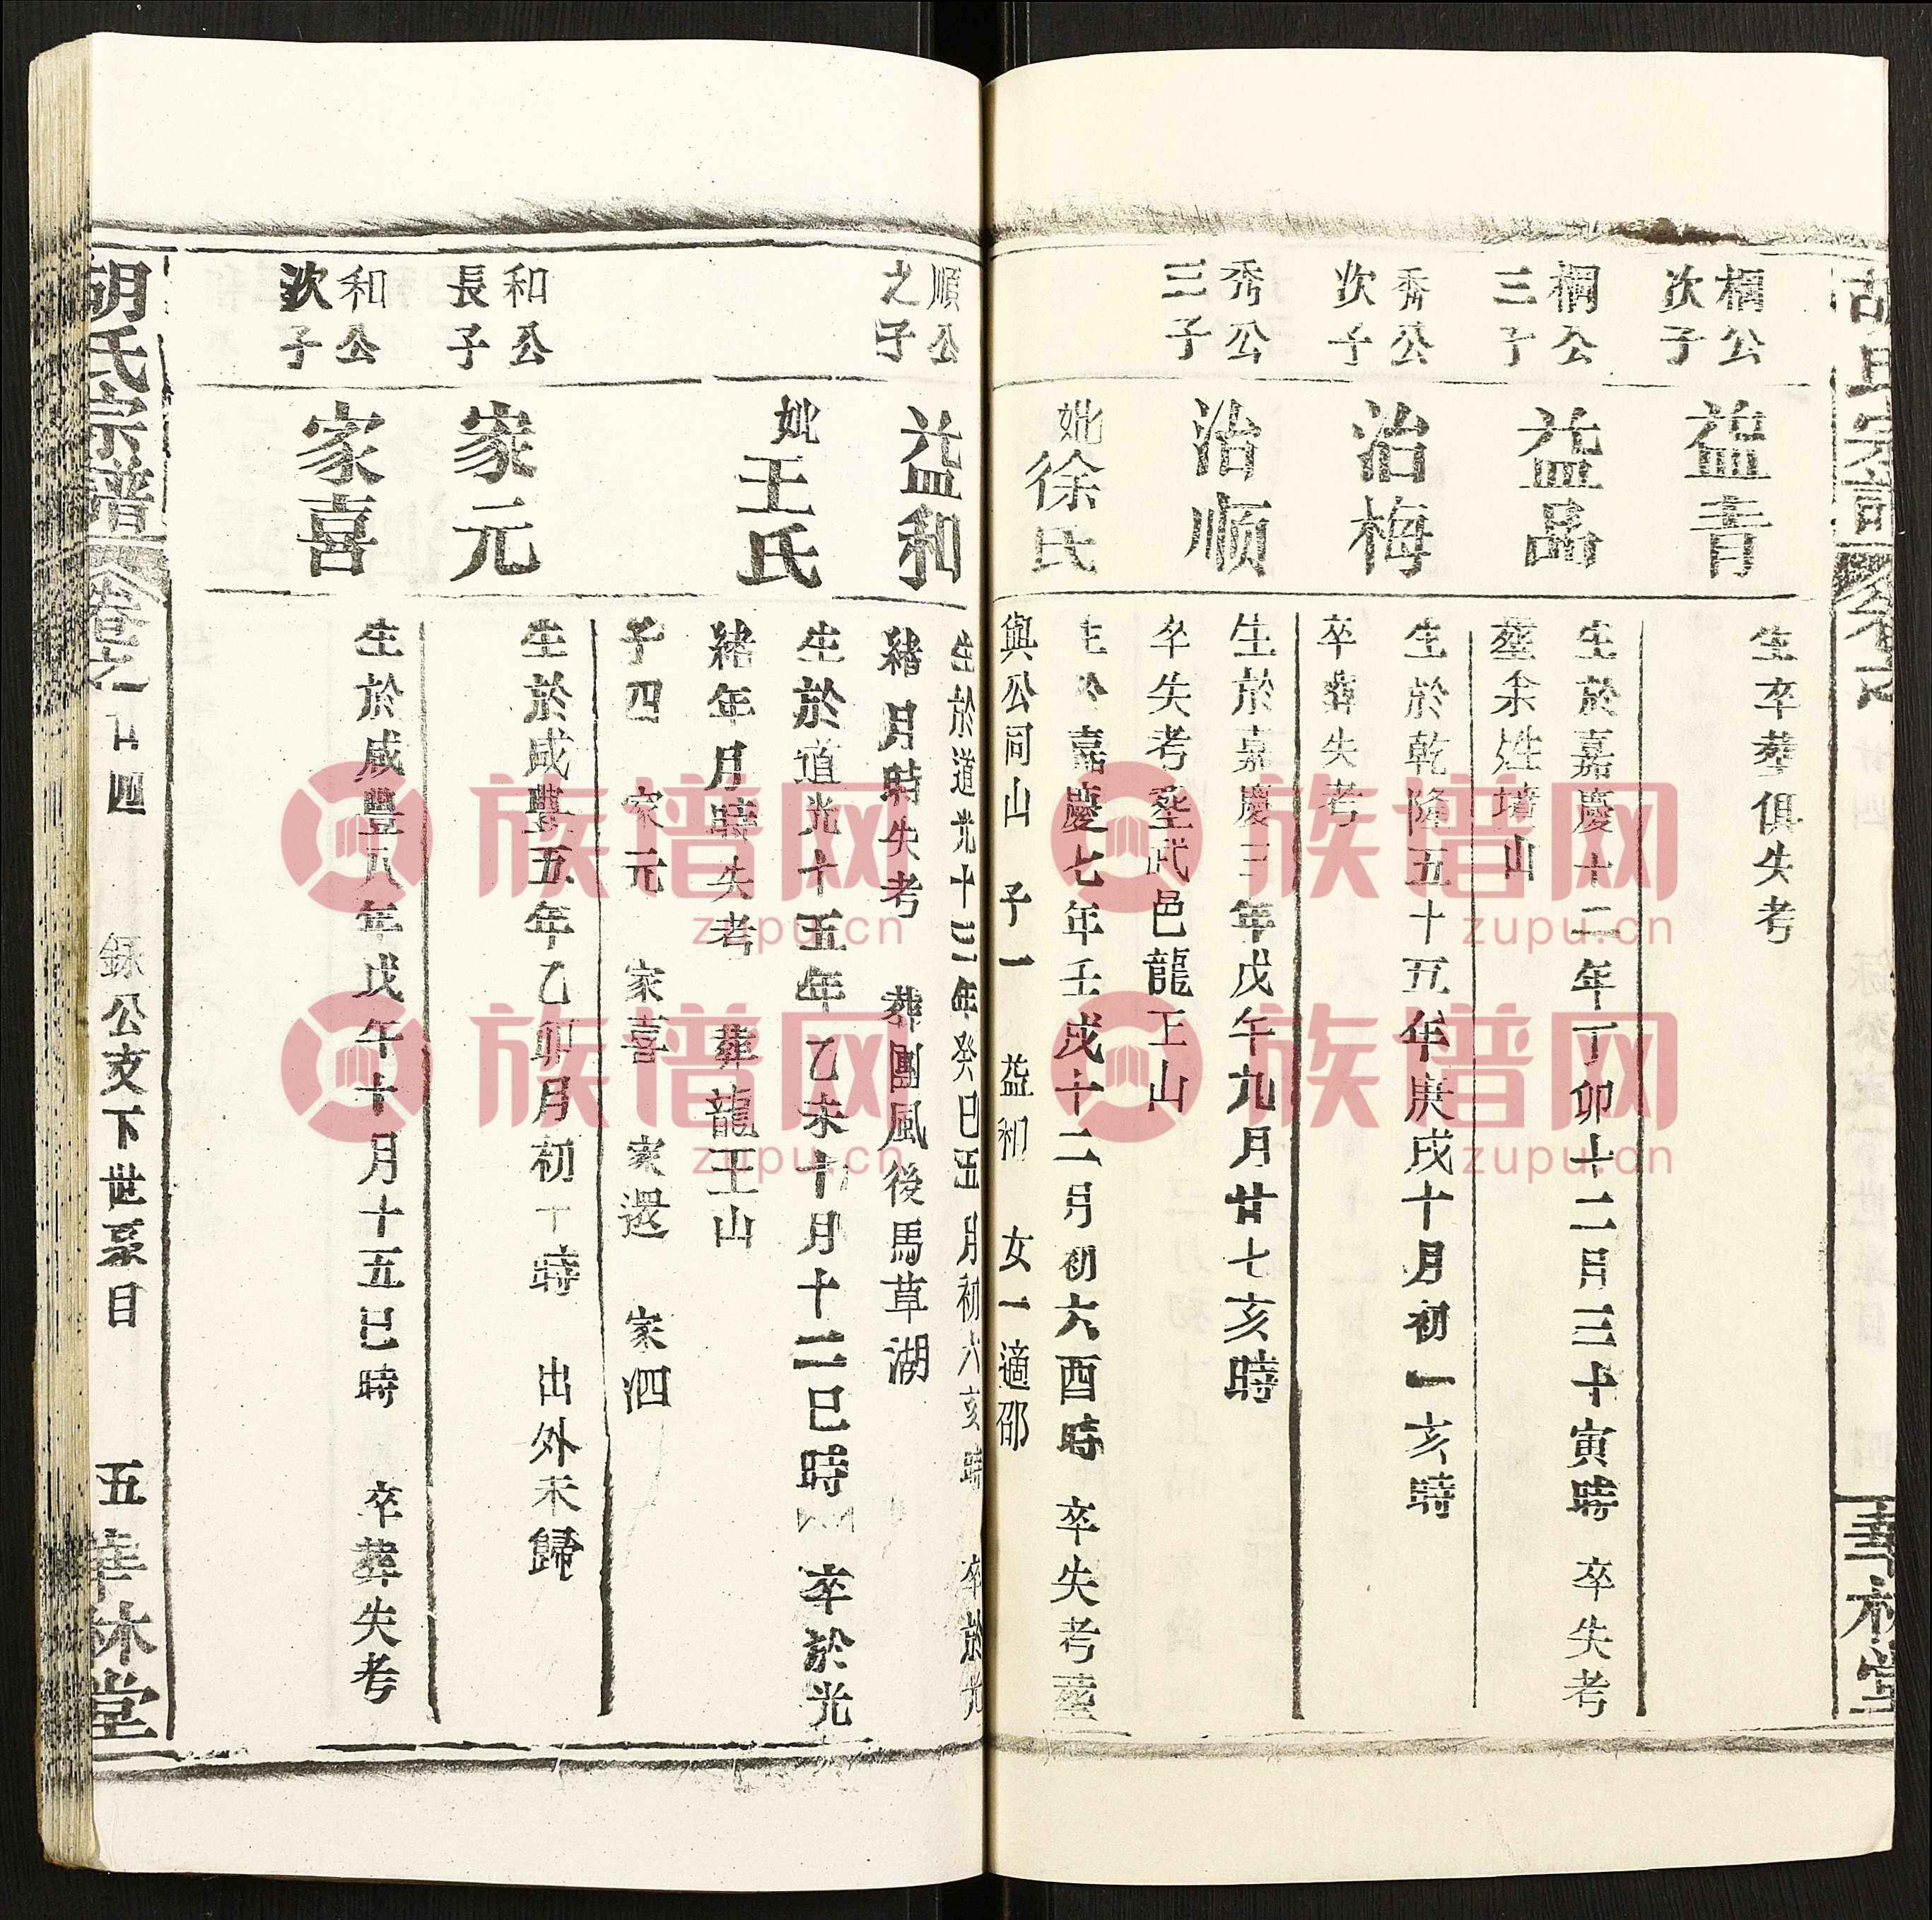 棡公
次子
益青
生卒塟俱失考
棡公
三子
益品
生於嘉慶十二年丁卯十二月三十寅時 卒失考
塟余姓墳山
秀公
次子
治梅
生於乾隆五十五年庚戌十月初一亥時
卒葬失考
秀公
三子
治顺
生於嘉慶三年戊午九月廿七亥時
卒失考塟武邑龍王山
妣徐氏
生於嘉慶七年壬戌十二月初六酉時 卒失考塟
與公同山 子一 益和 女一適邵
順公
之子
益和
生於道光十三年癸巳五月初六亥時 卒於光
緒 月時失考 葬團風後馬草湖
妣王氏
生於道光十五年乙未十月十二巳時 卒於光
緒年月時失考 葬龍王山
子四 家元 家喜 家還 家泗
和公
長子
家元
生於咸豐五年乙卯月初 時 出外未歸
和公
次子
家喜
生於咸豐八年戊午十月十五巳時 卒葬失考
胡氏宗譜 卷之一 廿四 錸公支下世系目 五 華林堂
族谱网
zupu.cn
族谱网
zupu.cn
族谱网
zupu.cn
族谱网
zupu.cn